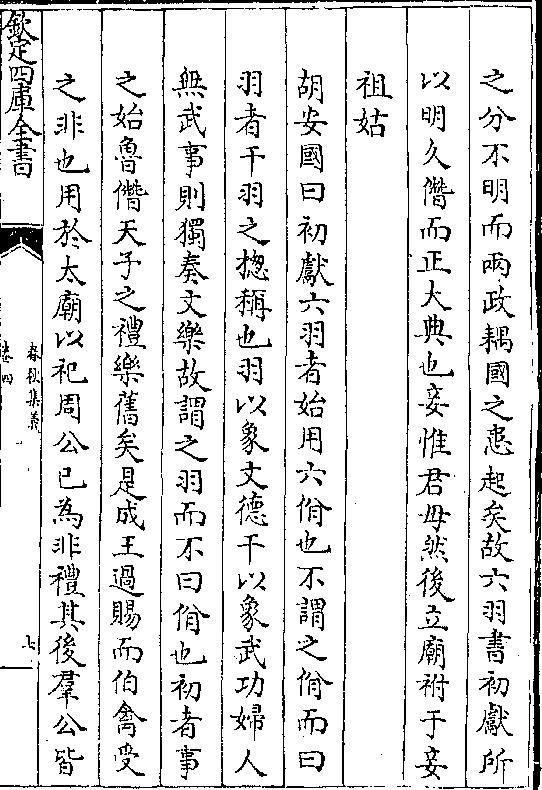 之分不明而兩政耦國之患起矣故六羽書初獻所
以明久僭而正大典也妾惟君母然後立廟祔于妾
祖姑
胡安國曰初獻六羽者始用六佾也不謂之佾而曰
羽者干羽之揔稱也羽以象文德干以象武功婦人
無武事則獨奏文樂故謂之羽而不曰佾也初者事
之始魯僭天子之禮樂舊矣是成王過賜而伯禽受
之非也用於太廟以祀周公已為非禮其後羣公皆
欽定四庫全書
春秋集義
卷四
七